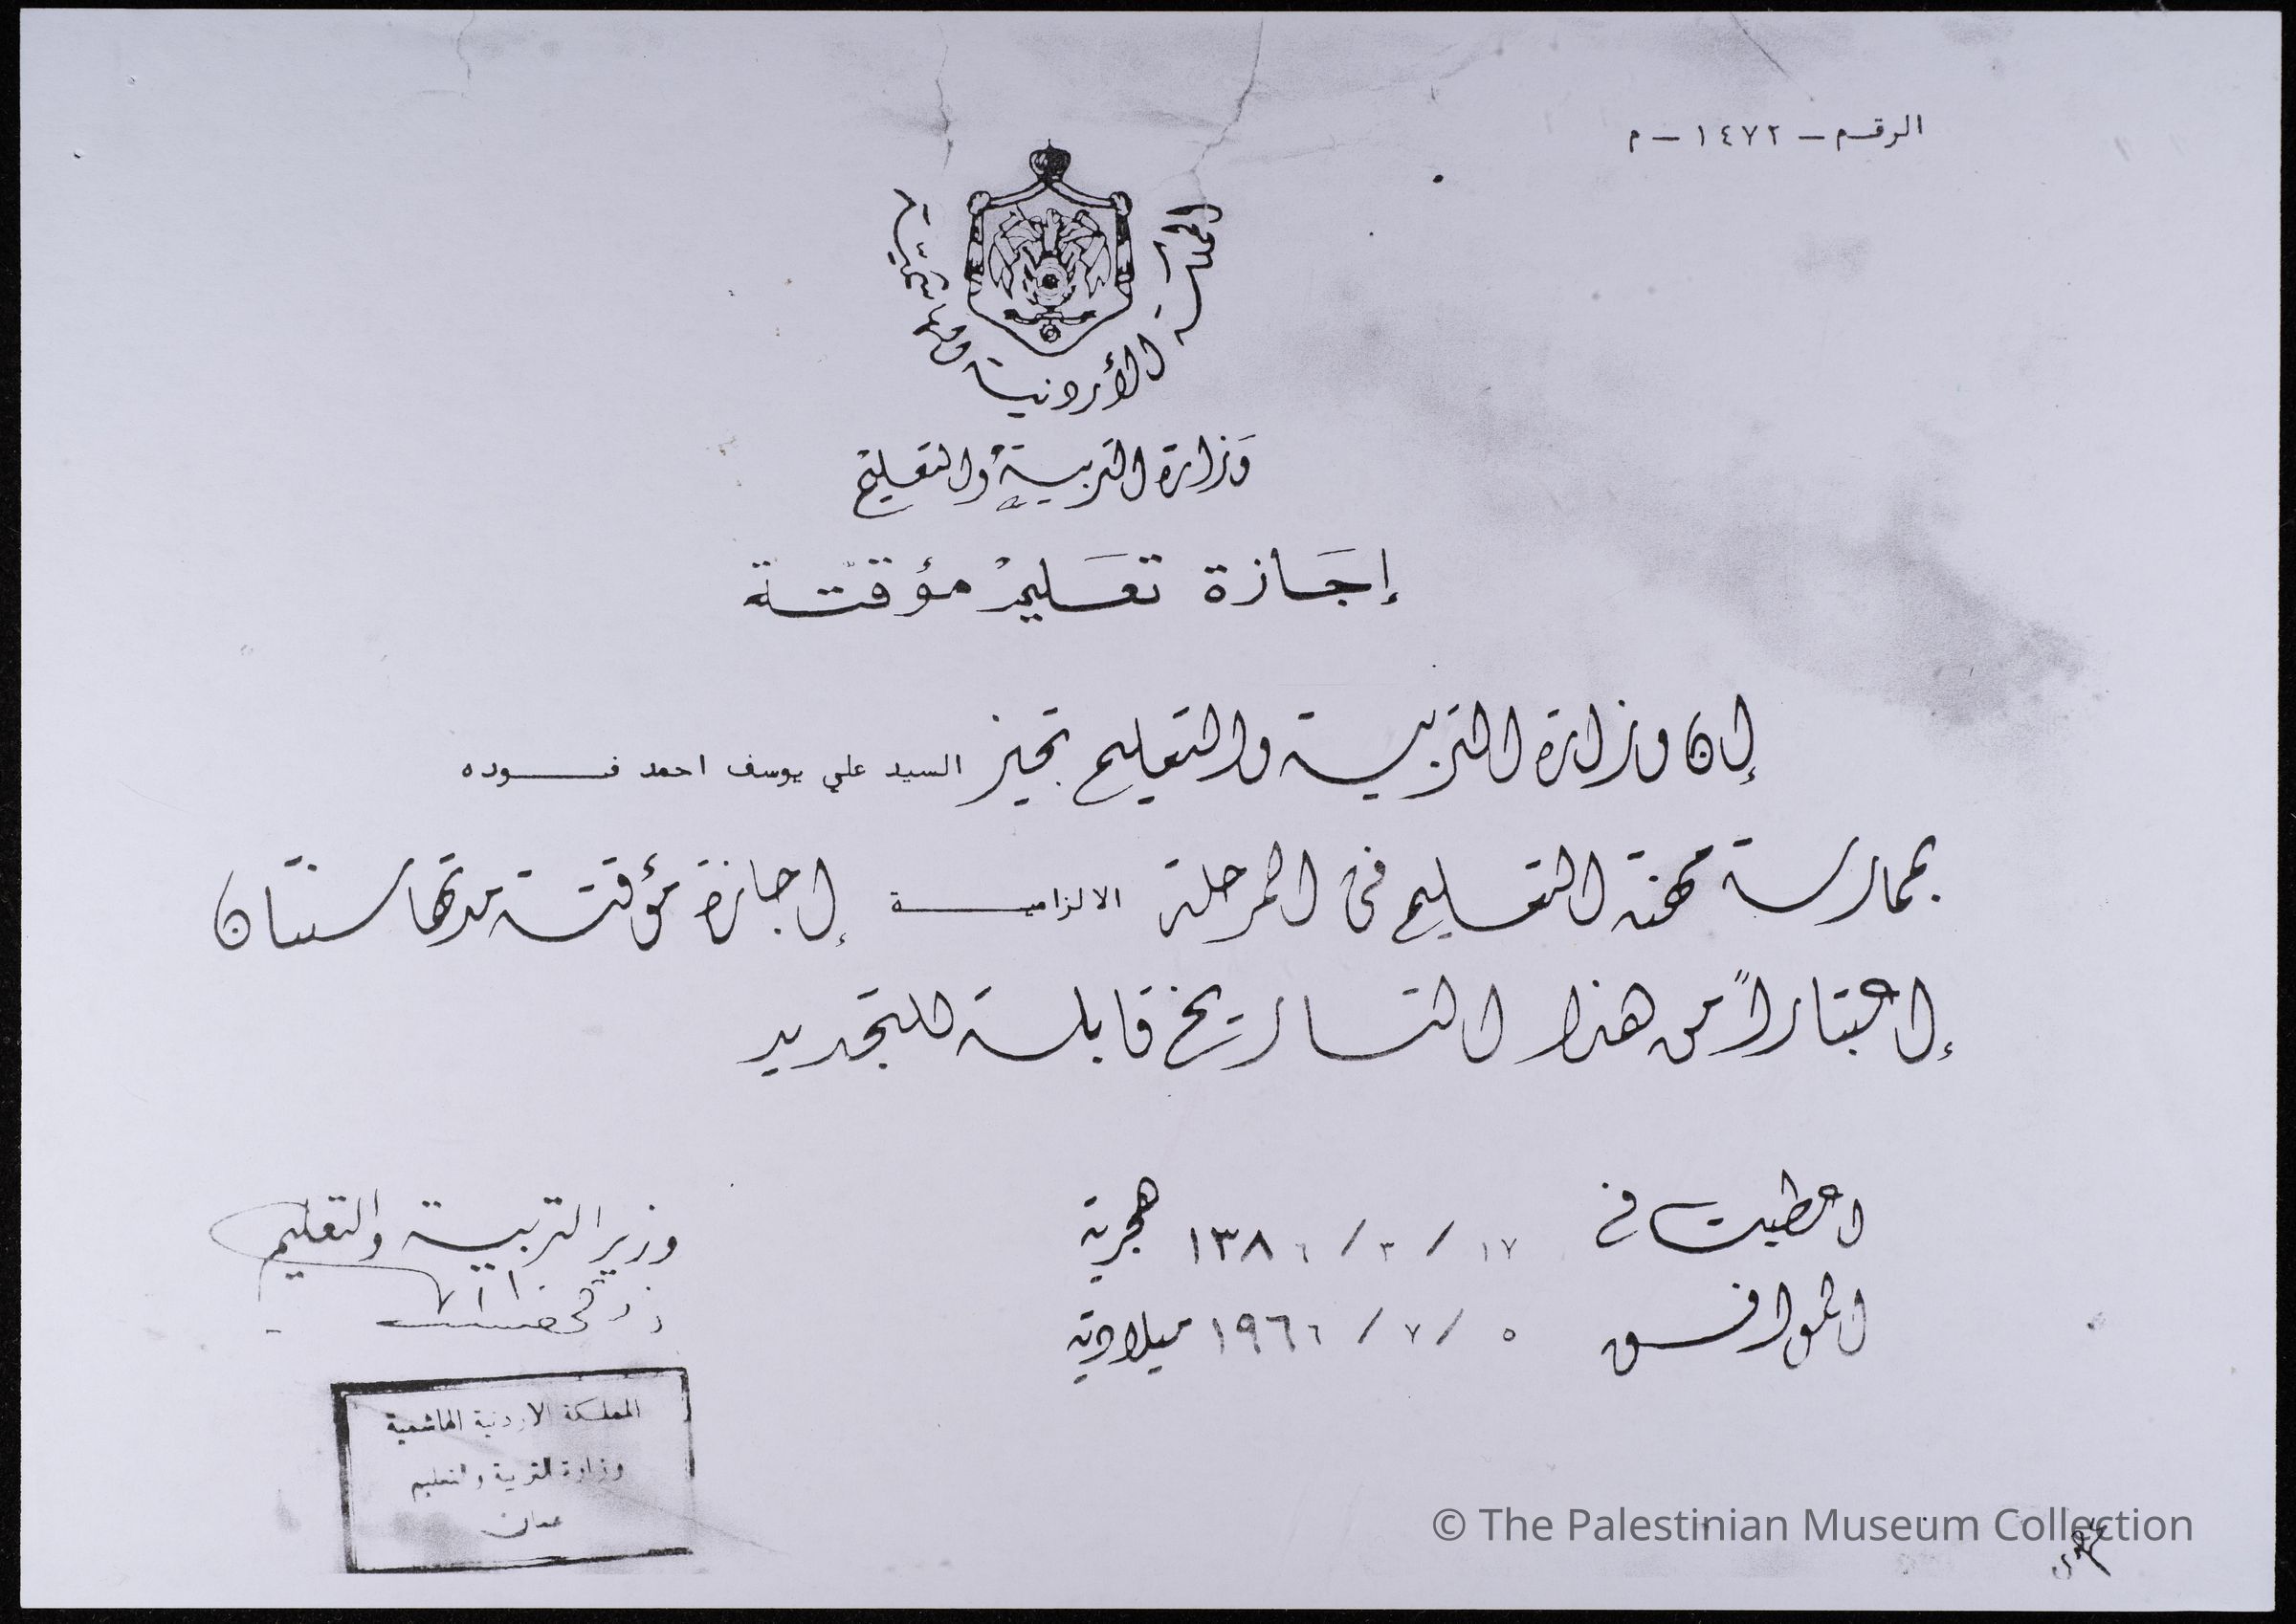 الرقم – ١٤٧٢ – م
المملكة الأردنية الهاشمية
وزارة التربية والتعليم
إجازة تعليم مؤقتة
إن وزارة التربية والتعليم تجيز السيد علي يوسف احمد فوده
بممارسة مهنة التعليم في المرحلة الالزامية إجازة مؤقتة مدتها سنتان
إعتباراً من هذا التاريخ قابلة للتجديد
اعطيت في ١٧ / ٣ / ١٣٨٦ هجرية
الموافق ٥ / ٧ / ١٩٦٦ ميلادية
وزير التربية والتعليم
المملكة الاردنية الهاشمية
وزارة التربية والتعليم
عمان
© The Palestinian Museum Collection